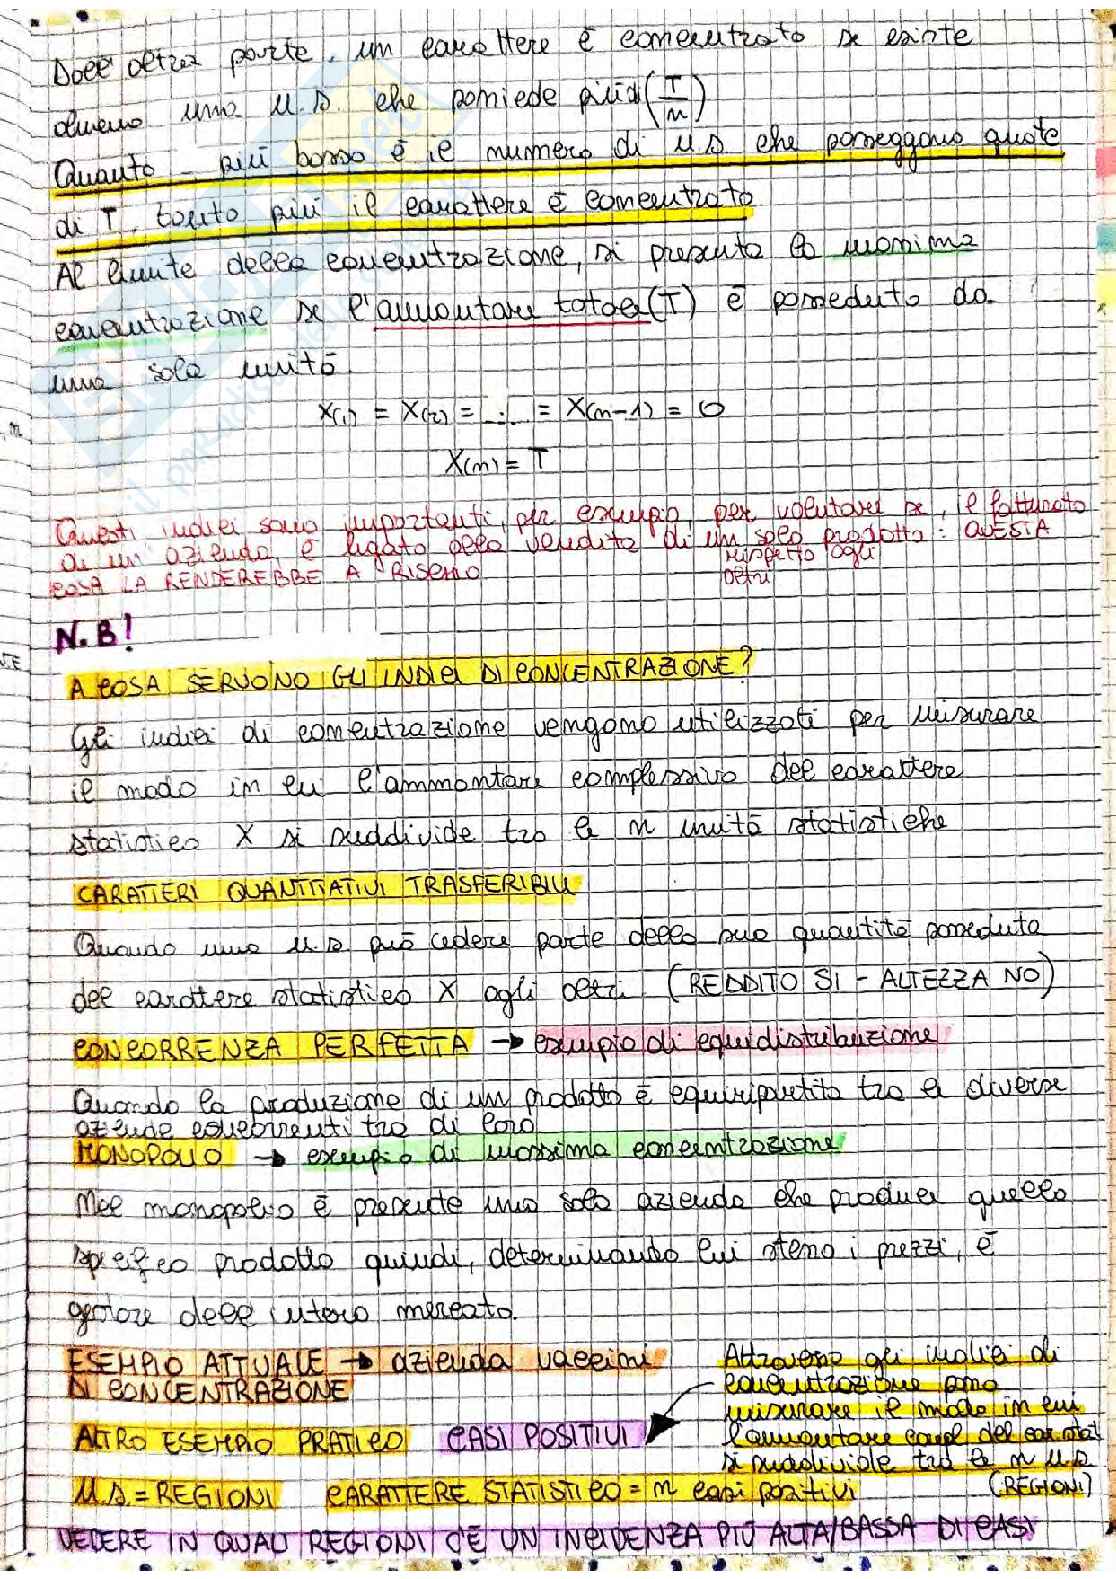 Dall' altra parte, un carattere è concentrato se esiste
almeno una u.s. che possiede più di (T/n)
Quanto più basso è il numero di u.s che posseggono quote
di T, tanto più il carattere è concentrato
Al limite della concentrazione, si presenta la massima
concentrazione se l'ammontare totale (T) è posseduto da
una sola unità.
X(1) = X(2) = ..... = X(n-1) = 0
X(n) = T
Questi indici sono importanti, per esempio, per valutare se, il fatturato
di un azienda è legato alla vendita di un solo prodotto : QUESTA
rispetto agli
altri
COSA LA RENDEREBBE A RISCHIO
N.B!
A COSA SERVONO GLI INDICI DI CONCENTRAZIONE?
Gli indici di concentrazione vengono utilizzati per misurare
il modo in cui l'ammontare complessivo del carattere
statistico X si suddivide tra le n unità statistiche
CARATTERI QUANTITATIVI TRASFERIBILI
Quando una u.s. può cedere parte della sua quantità posseduta
del carattere statistico X agli altri (REDDITO SI - ALTEZZA NO)
CONCORRENZA PERFETTA → esempio di equidistribuzione
Quando la produzione di un prodotto è equiripartita tra le diverse
aziende concorrenti tra di loro
MONOPOLIO → esempio di massima concentrazione
Nel monopolio è presente una sola azienda che produce quello
specifico prodotto quindi, determinando lui stesso i prezzi, è
gestore dell'intero mercato.
ESEMPIO ATTUALE → azienda vaccini
DI CONCENTRAZIONE
Attraverso gli indici di
concentrazione posso
misurare il modo in cui
l'ammontare compl del car stat
si suddivide tra le n u.s
(REGIONI)
ALTRO ESEMPIO PRATICO CASI POSITIVI
U.S. = REGIONI CARATTERE STATISTICO = n casi positivi
VEDERE IN QUALI REGIONI C'È UN INCIDENZA PIÙ ALTA/BASSA DI CASI